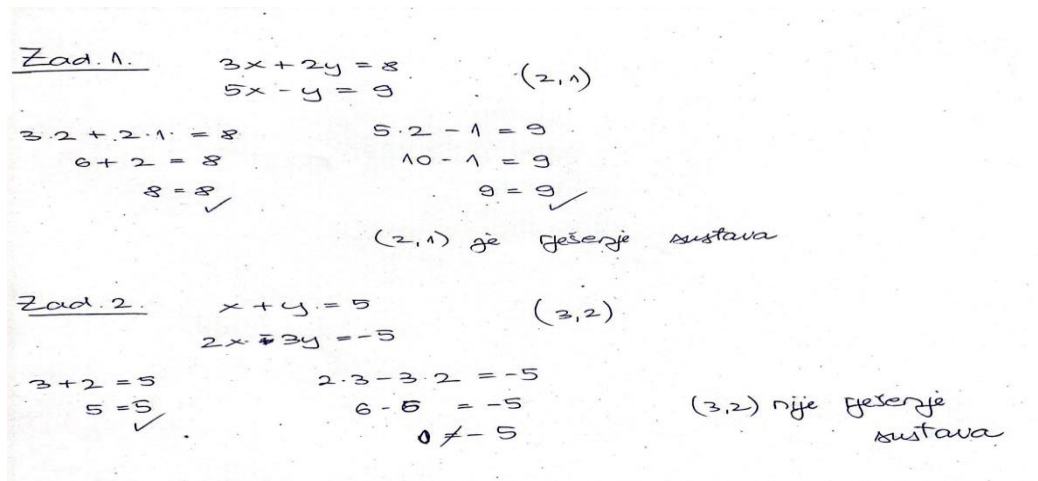 Zad. 1.
3x + 2y = 8
5x - y = 9
(2,1)
3·2 + 2·1 = 8
6 + 2 = 8
8 = 8 ✓
5·2 - 1 = 9
10 - 1 = 9
9 = 9 ✓
(2,1) je rješenje sustava
Zad. 2.
x + y = 5
2x - 3y = -5
(3,2)
3 + 2 = 5
5 = 5 ✓
2·3 - 3·2 = -5
6 - 6 = -5
0 ≠ -5
(3,2) nije rješenje
sustava